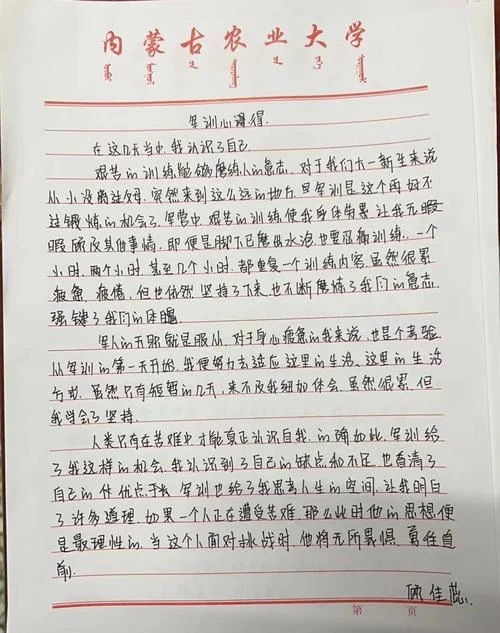 内蒙古农业大学
军训心得.
在这几天当中,我认识了自己.
艰苦的训练能够磨练人的意志.对于我们大一新生来说
从小没离过父母.突然来到这么远的地方.且军训是这个再好不
过锻炼的机会了.军营中.艰苦的训练使我身体劳累.让我无暇
暇顾及其他事情.即便是脚下已磨出水泡也要忍痛训练.一个
小时.两个小时.甚至几个小时.都重复一个训练内容.虽然很累
疲惫、疲倦,但也依然坚持了下来.也不断磨炼了我们的意志.
强键了我们的体
军人的天职就是服从.对于身心疲惫的我来说,也是个考验.
从军训的第一天开始.我便努力去适应这里的生活、这里的生活
方式.虽然只有短暂的几天,来不及我细加体会.虽然很累,但
我学会了坚持.
人类只有在苦难中才能真正认识自我.的确如此.军训给
了我这样的机会.我认识到了自己的缺点和不足,也看清了
自己的优点.军训也给了我思考人生的空间.让我明白
了许多道理.如果一个人正在遭受苦难.那么此时他的思想便
是最理性的.当这个人面对挑战时.他将无所畏惧.勇往直
前.
佳
第 页